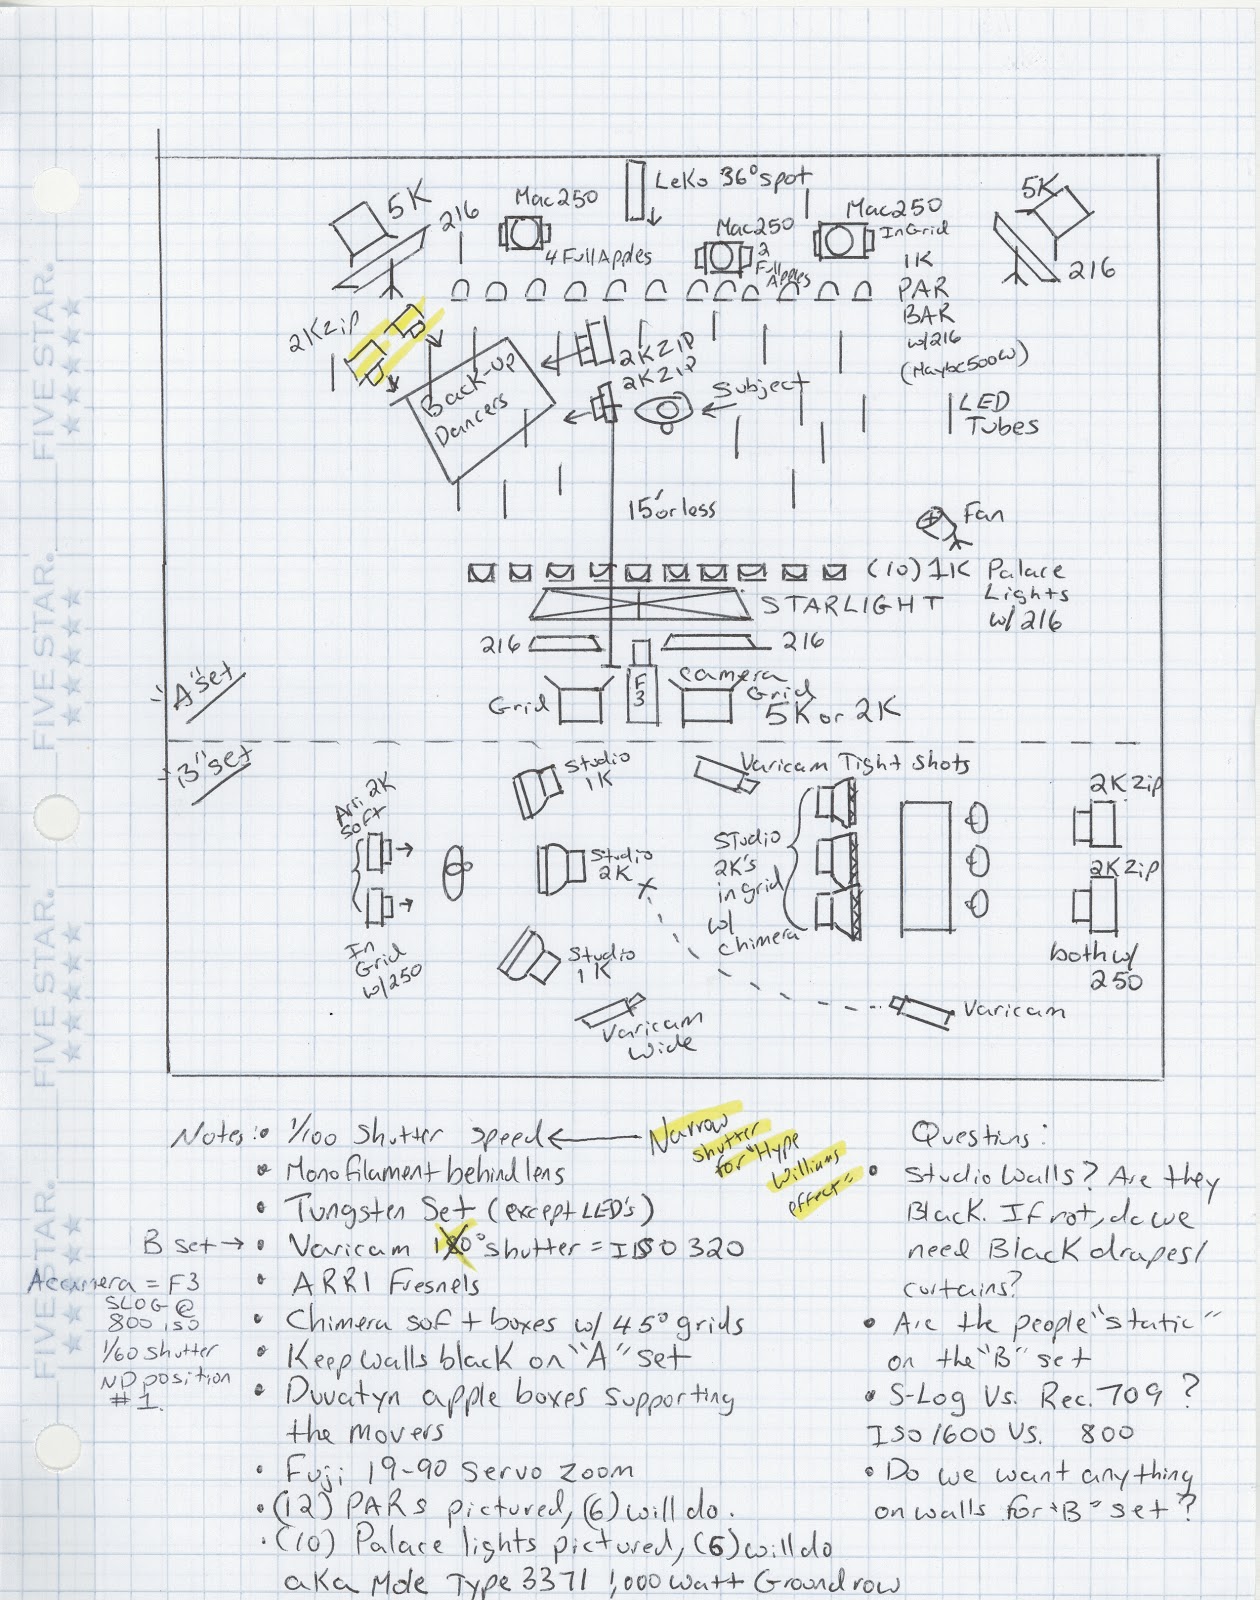 FIVE STAR.
FIVE STAR.
FIVE STAR.
FIVE STAR.
5K
216
Mac250
4 Full Apples
LeKo 36° spot
Mac250
2
Full
Apples
Mac250
InGrid
5K
216
1K
PAR
BAR
w/216
(Maybe500w)
2KZip
Back-up
Dancers
2KZIP
2KZIP
Subject
LED
Tubes
15' or less
Fan
(10) 1K Palace
Lights
w/ 216
STARLIGHT
216
216
Grid
F
3
camera
Grid
5K or 2K
"A" Set
"B" Set
Arri 2K
Soft
In
Grid
w/250
Studio
1K
Studio
2K
Studio
1K
Varicam Tight Shots
Studio
2K's
in grid
w/
Chimera
2K Zip
2K Zip
both w/
250
Varicam
Wide
Varicam
Notes:
• 1/100 Shutter Speed
Narrow
shutter
for "Hype
Williams
effect"
• Monofilament behind lens
• Tungsten Set (except LED's)
B set → • Varicam 180° shutter = ISO 320
A camera = F3
SLOG @
800 iso
1/60 shutter
ND position
#1.
• ARRI Fresnels
• Chimera soft boxes w/ 45° grids
• Keep walls black on "A" set
• Duvatyn apple boxes supporting
the movers
• Fuji 19-90 Servo Zoom
• (12) PARs pictured, (6) will do.
• (10) Palace lights pictured, (6) will do
aka Mole Type 3371 1,000 watt Ground row
Questions:
• Studio walls? Are they
Black. If not, do we
need Black drapes/
curtains?
• Are the people "static"
on the "B" set
• S-Log Vs. Rec. 709?
ISO 1600 VS. 800
• Do we want anything
on walls for "B" set?